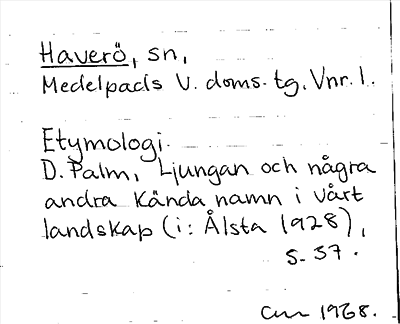 Haverö, sn,
Medelpads V. doms. tg, Vnr. 1.
Etymologi.
D. Palm, Ljungan och några
andra kända namn i vårt
landskap (i: Ålsta 1928),
s. 37.
1968.